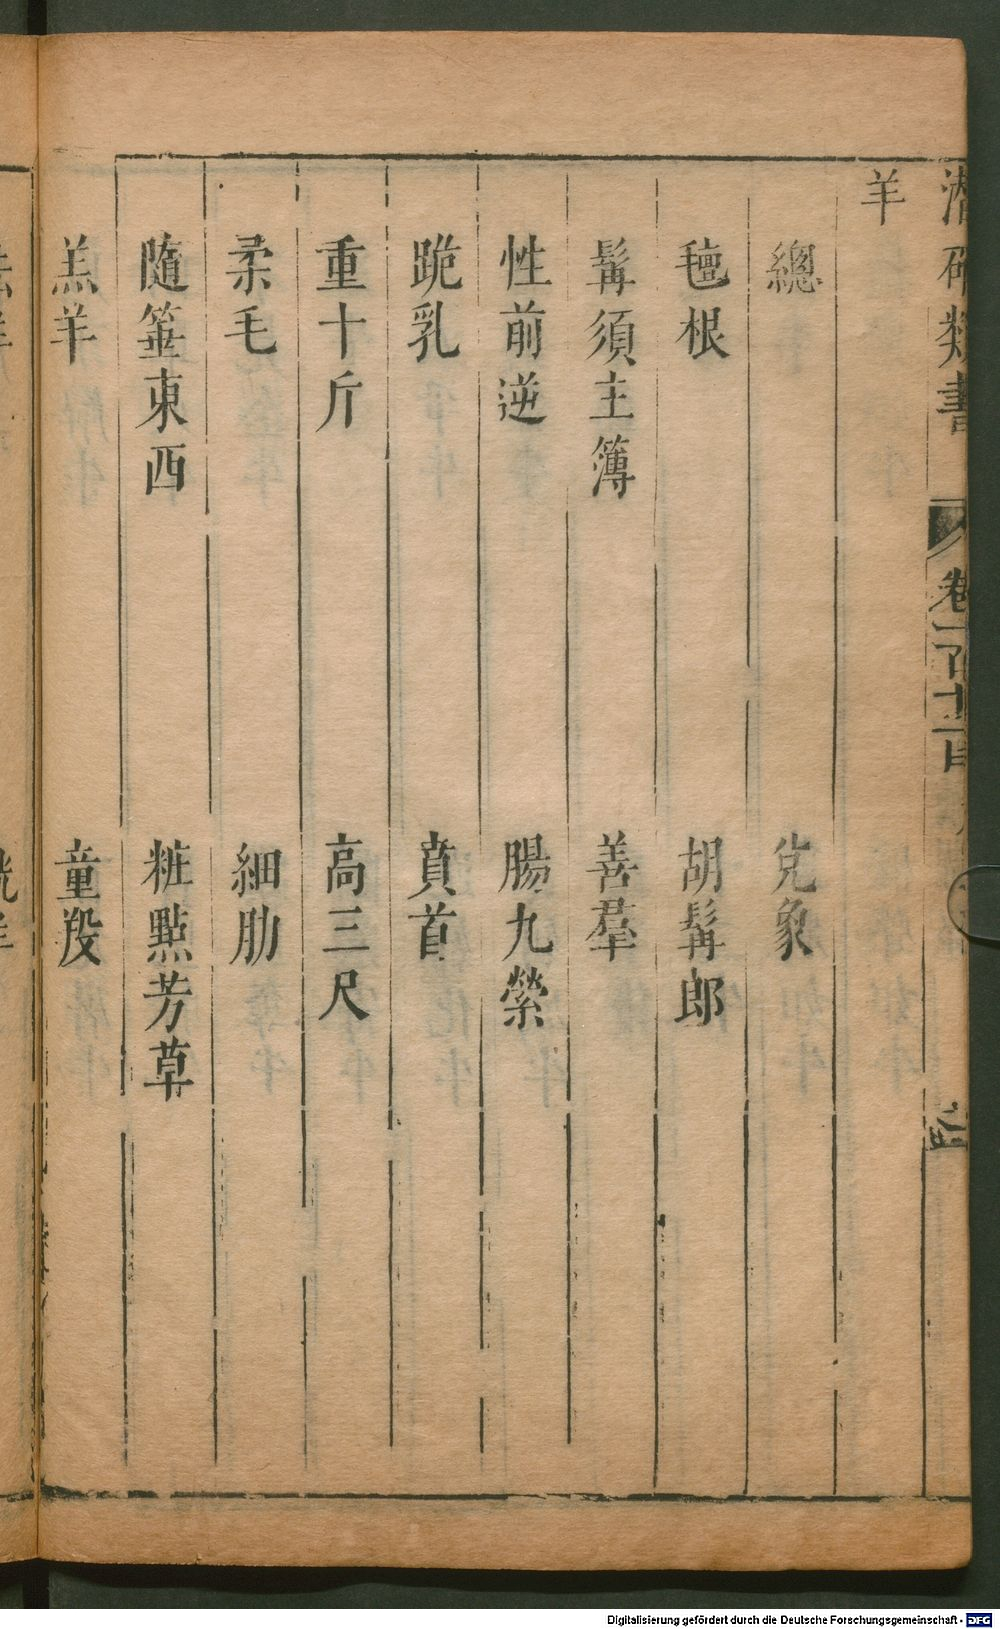 羊
總　兌象
氊根　胡髯郎
髯須主簿　善羣
性前逆　腸九縈
跪乳　賁首
重十斤　高三尺
柔毛　細肋
隨箠東西　粧點芳草
羔羊　童羖
Digitalisierung gefördert durch die Deutsche Forschungsgemeinschaft - DFG